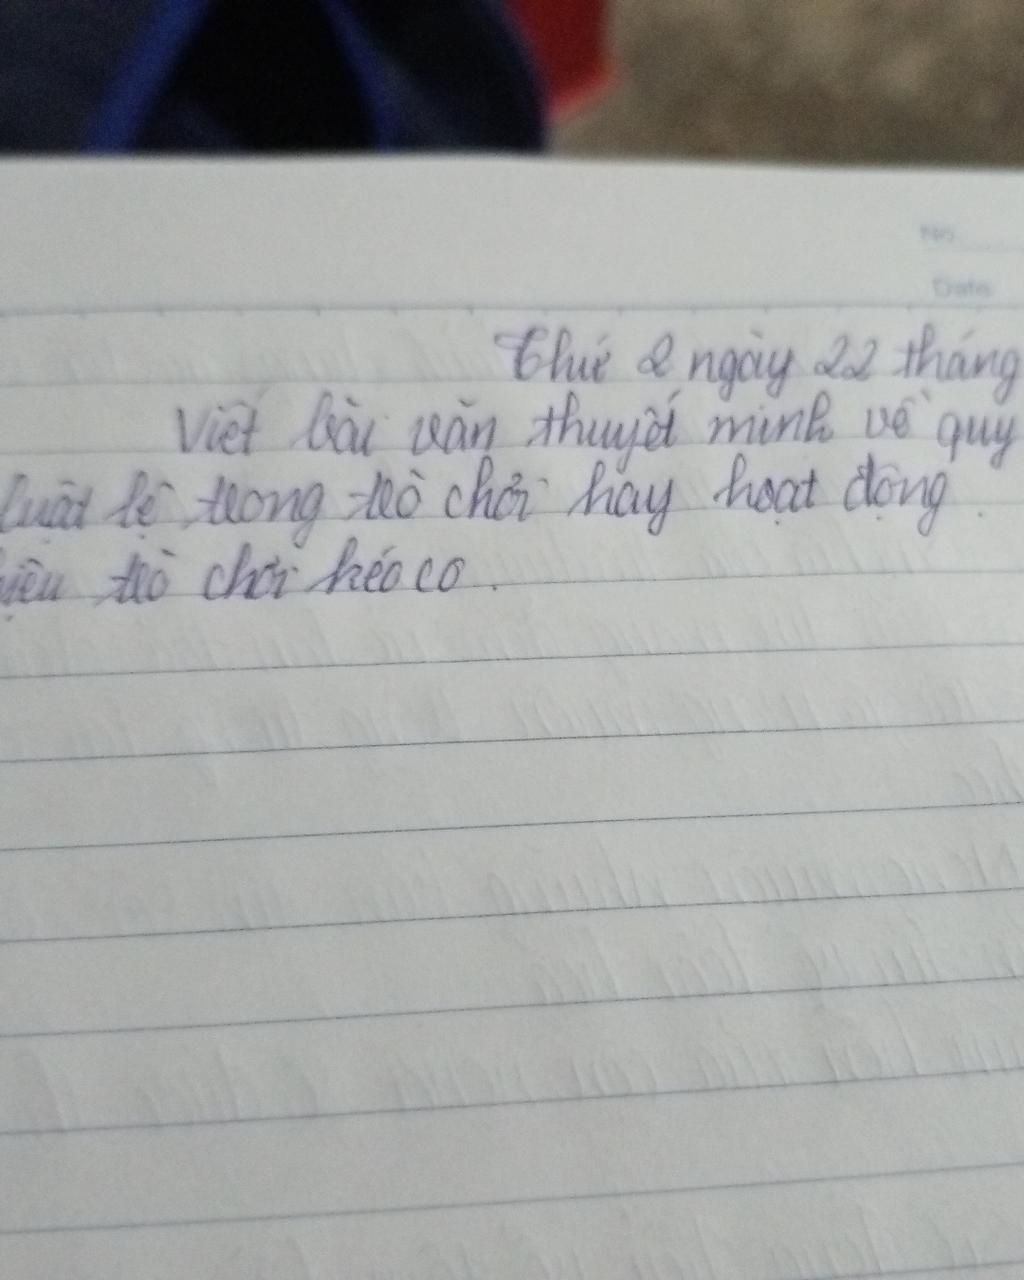 No.
Date
Thứ 2 ngày 22 tháng
Viết bài văn thuyết minh về quy
luật lệ trong trò chơi hay hoạt động.
trò chơi kéo co.